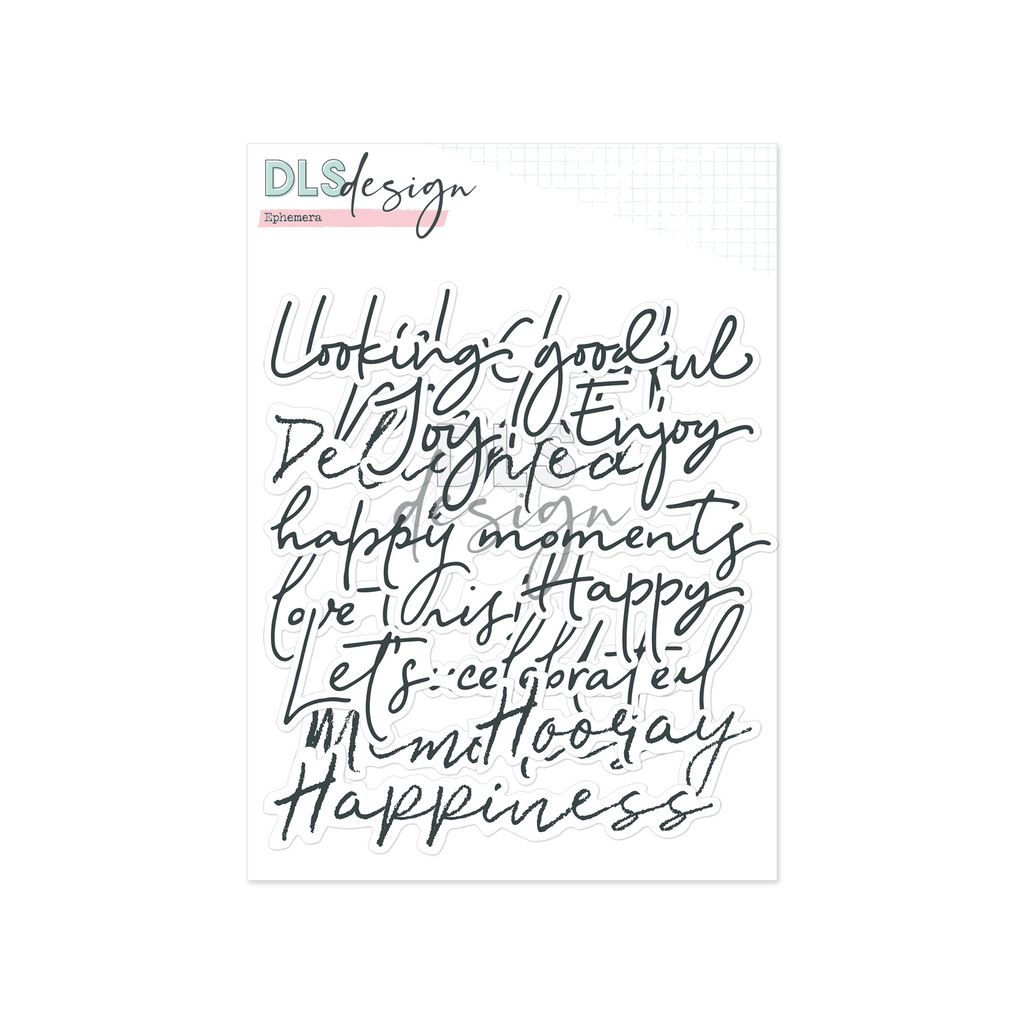 DLS design
Ephemera
Looking good
Joy Enjoy
DLS
design
happy moments
love this! Happy
Let's celebrate
Hooray
Happiness